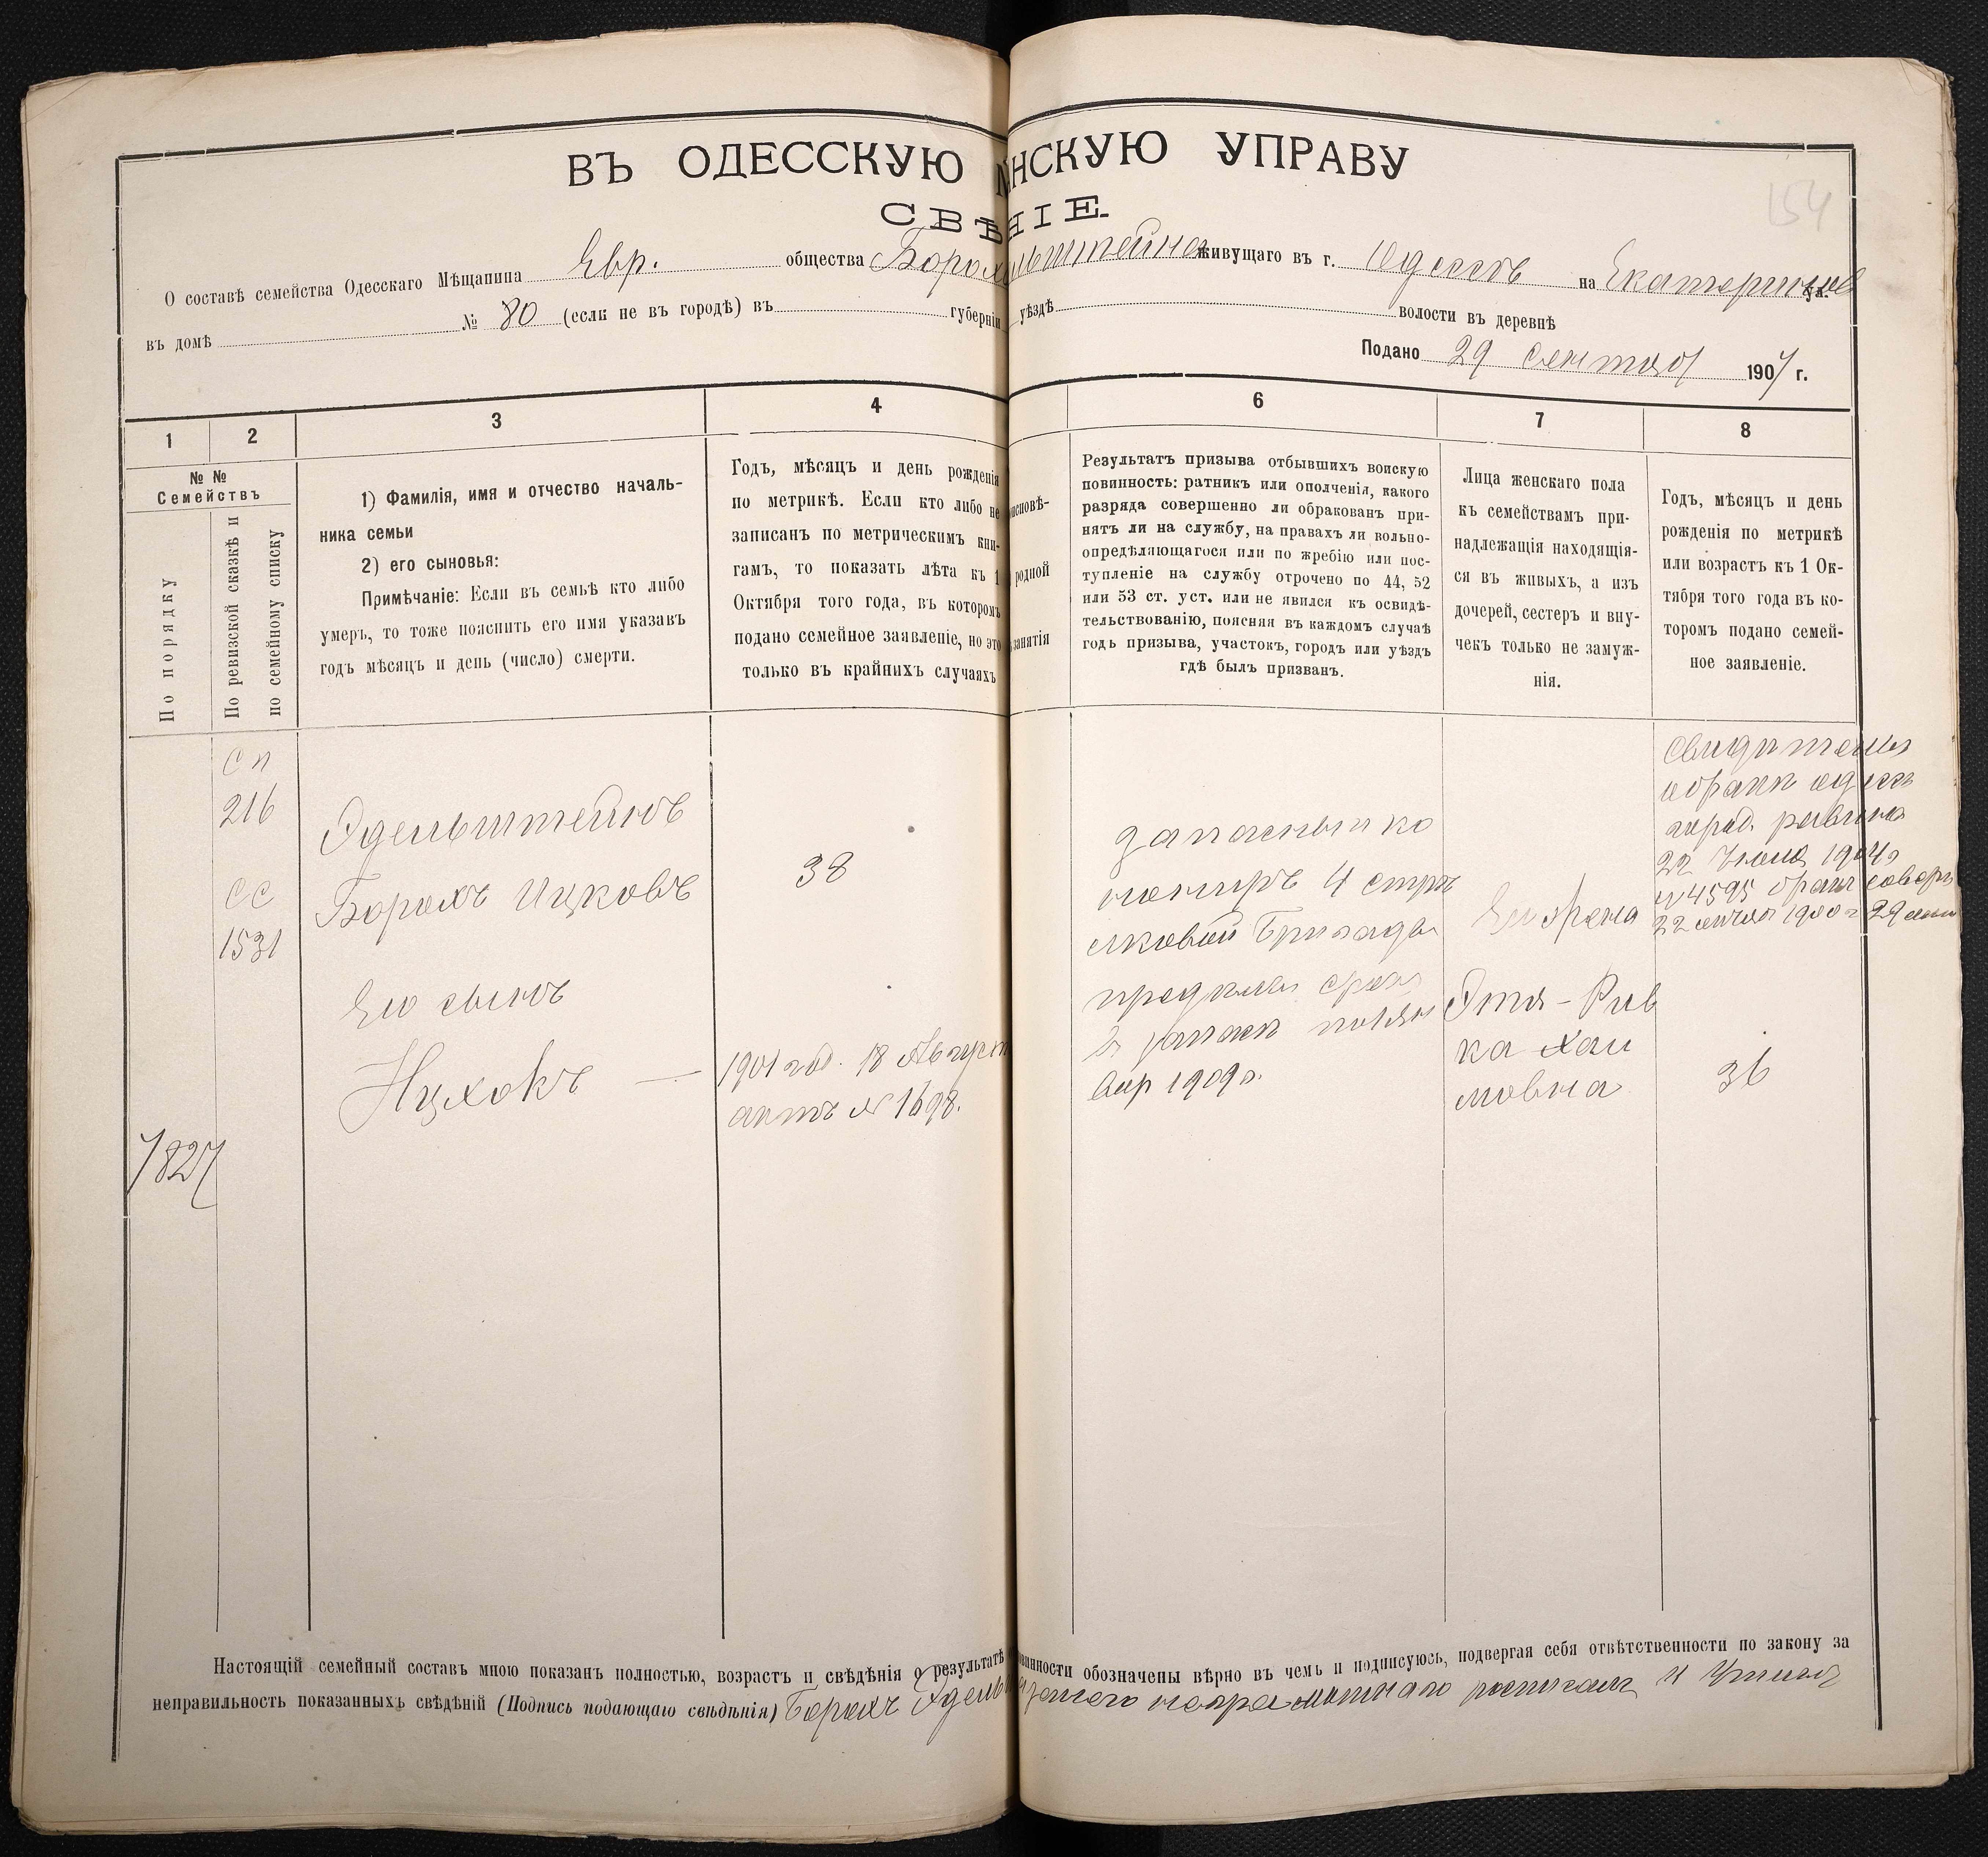 ВЪ ОДЕССКУЮ НСКУЮ УПРАВУ
СВѢ НІЕ.
154
О составѣ семейства Одесскаго Мѣщанина Евр. общества Борох льштейна живущаго въ г. Одессѣ на Екатеринин ул.
въ домѣ № 80 (если не въ городѣ) въ губерніи уѣздѣ волости въ деревнѣ
Подано 29 сентяб 1907 г.
1
2
3
4
6
7
8
№ №
Семействъ
По порядку
По ревизской сказкѣ и
по семейному списку
1) Фамилія, имя и отчество началь-
ника семьи
2) его сыновья:
Примѣчаніе: Если въ семьѣ кто либо
умеръ, то тоже пояснить его имя указавъ
годъ мѣсяцъ и день (число) смерти.
Годъ, мѣсяцъ и день рожденія
по метрикѣ. Если кто либо не
записанъ по метрическимъ кни-
гамъ, то показать лѣта къ 1
Октября того года, въ которомъ
подано семейное заявленіе, но это
только въ крайныхъ случаяхъ
исповѣ-
родной
занятія
Результатъ призыва отбывшихъ воискую
повинность: ратникъ или ополченія, какого
разряда совершенно ли обракованъ при-
нятъ ли на службу, на правахъ ли вольно-
опредѣляющагося или по жребію или пос-
тупленіе на службу отрочено по 44, 52
или 53 ст. уст. или не явился къ освидѣ-
тельствованію, поясняя въ каждомъ случаѣ
годъ призыва, участокъ, городъ или уѣздъ
гдѣ былъ призванъ.
Лица женскаго пола
къ семействамъ при-
надлежащія находящія-
ся въ живыхъ, а изъ
дочерей, сестеръ и вну-
чекъ только не замуж-
нія.
Годъ, мѣсяцъ и день
рожденія по метрикѣ
или возрастъ къ 1 Ок-
тября того года въ ко-
торомъ подано семей-
ное заявленіе.
сп
216
сс
1531
7827
Эдельштейнъ
Борохъ Ицковъ
Его сынъ
Нухокъ —
38
1901 год. 18 Август
актъ № 1698.
запасный ко
нониръ 4 стрѣ
лковой Бригады
срок
Апр 1909 г.
Его жена
Этя-Рив
ка Хаи
мовна
36
город. равина
22 1904 г
№ 4595
22 1900 г
Настоящій семейный составъ мною показанъ полностью, возрастъ и свѣдѣнія о результатѣ винности обозначены вѣрно въ чемъ и подписуюсь, подвергая себя отвѣтственности по закону за
неправильность показанныхъ свѣдѣній (Подпись подающаго свѣдѣнія) Борохъ Эдель неграмотнаго